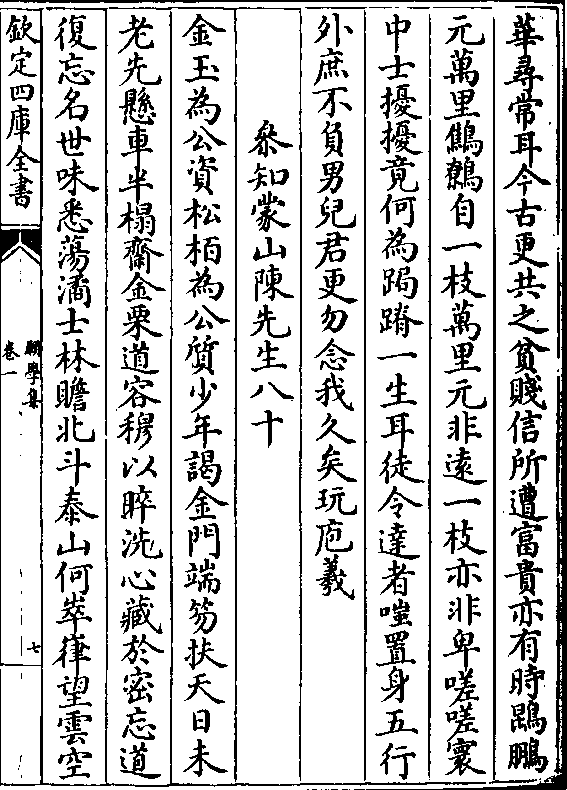 華尋常耳今古更共之貧賤信所遭富貴亦有時鵾鵬
元萬里鷦鷯自一枝萬里元非遠一枝亦非卑嗟嗟寰
中士擾擾竟何為跼蹐一生耳徒令達者嗤置身五行
外庶不負男兒君更勿念我久矣玩庖羲
叅知蒙山陳先生八十
金玉為公資松柏為公質少年謁金門端笏扶天日未
老先懸車半榻齋金粟道容穆以睟洗心藏於密忘道
復忘名世味悉蕩潏士林瞻北斗泰山何崒嵂望雲空
欽定四庫全書
願學集
卷一
七